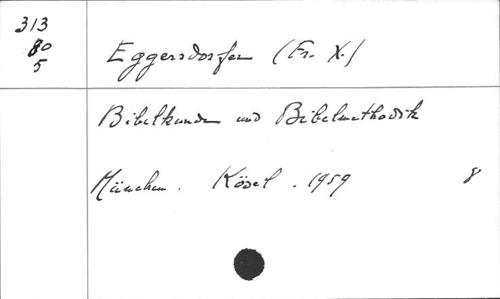 313
80
5
Eggersdorfer (Fr. X.)
Bibelkunde und Bibelmethodik
München. Kösel. 1959 8